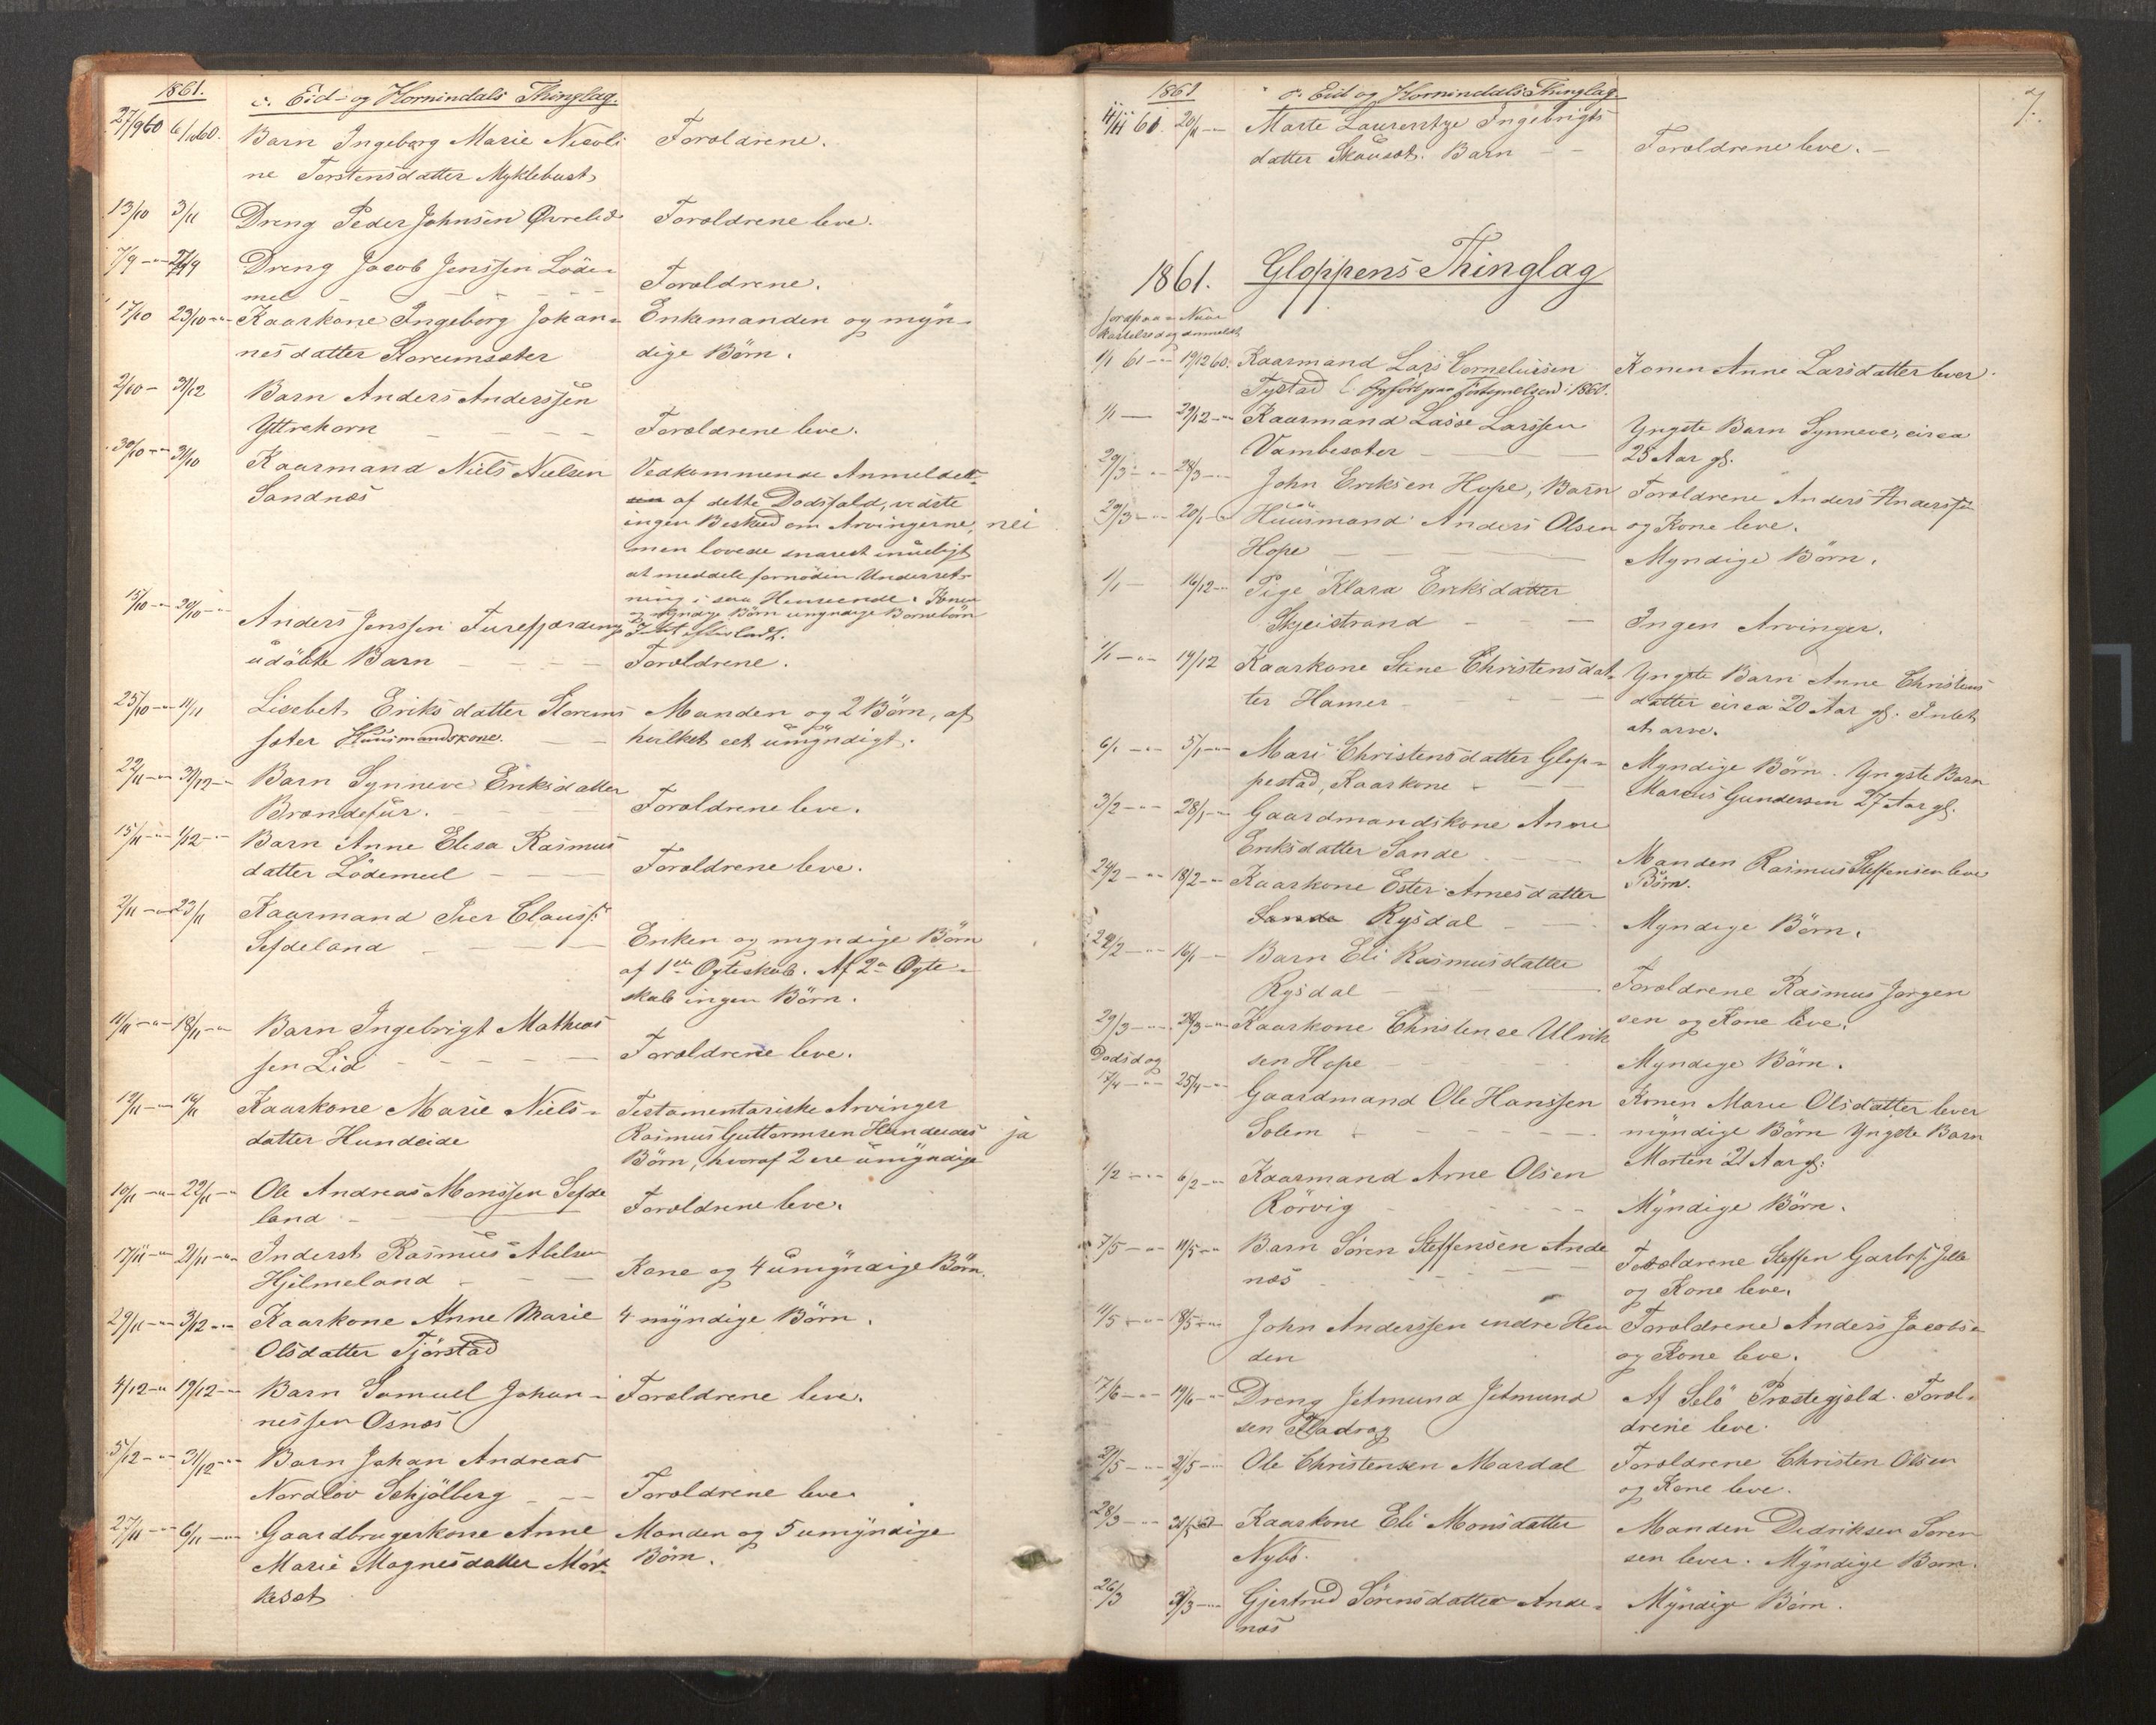 1861.
c. Eid- og Hornindals Thinglag.
27/9 60 6/10 60. Barn Ingeborg Marie Nicoli Forældrene.
ne Torstensdatter Myklebust
13/10 3/11 Dreng Peder Johnsen Øvrelid Forældrene leve.
7/9 - " - 27/9 Dreng Jacob Jenssen Löde-
mel - - - - Forældrene.
17/10 23/10 - " - Kaarkone Ingeborg Johan- Enkemanden og myn-
nesdatter Storeimsæter dige Börn.
2/10 - 31/12 Barn Anders Anderssen
Yttrehorn - - - - Forældrene leve.
30/10 - " - 31/10 Kaarmand Niels Nielsen Vedkommende Anmelder
Sandnæs af dette Dødsfald, vidste
ingen Beskeed om Arvingerne, nei
men lovede snarest mueligt
at meddele fornöden Underret-
ning i saa Henseende. Konen
og myndige Börn umyndige Bornebörn
Intet efterladt.
15/10 - " - 20/10 - " - Anders Jenssen Furefjordens
udöbte Barn - - - - Forældrene.
25/10 - " - 11/11 Lisebet Eriksdatter Storeims Manden og 2 Börn, af
sæter Huusmandskone. - - hvilket eet umyndigt.
22/11 - " - 31/12 - " Barn Synneve Eriksdatter
Brændefur. - - - Forældrene leve.
15/11 - " - 1/12 - " - Barn Anne Elesa Rasmus
datter Lödemeel - - - Forældrene leve.
2/11 - " - 23/11 Kaarmand Iver Clauss:
Sefdeland - - - Enken og myndige Börn
af 1ste Ægteskab. Af 2n Ægte-
skab ingen Börn.
11/11 - " - 18/11 - " Barn Ingebrigt Mathias
sen Lid - - - - Forældrene leve.
12/11 - " - 14/11 Kaarkone Marie Niels- Testamentariske Arvinger
datter Hundeide Rasmus Guttormsen Hundeides ja
Börn, hvoraf 2 ere umyndige
10/11 - " - 22/11 - " Ole Andreas Monssen Sefde
land - - - Forældrene leve.
17/11 - " - 21/11 - " - Inderst Rasmus Abelsen
Hjelmeland - - - Kone og 4 umyndige Börn.
29/11 - " - 3/12 - " - Kaarkone Anne Marie 4 myndige Börn.
Olsdatter Tjörstad
4/12 - " 19/12 - " - Barn Samuel Johan- Forældrene leve.
nessen Osnæs
5/12 - " - 31/12 - " Barn Johan Andreas
Nordlöv Schjölberg - - Forældrene leve.
27/11 - " - 6/11 - " - Gaardbrugerkone Anne Manden og 5 umyndige
Marie Magnesdatter Mör- Börn.
keset
7.
1861
c. Eid og Hornindals Thinglag.
11/11 61 20/11 - " Marte Laurentze Ingebrigts
datter Skauset. Barn - - Forældrene leve. -
1861. Gloppens Thinglag
Jordpaa- Naar
kastelsedag anmeldt
1/1 61 - " 19/12 60. Kaarmand Lars Corneliussen Konen Anne Larsdatter lever.
Tystad
1/1 - 29/12 - " Kaarmand Lasse Larssen Yngste Barn Synneve, circa
Vambesæter - - - 25 Aar gl.
29/3 - " - 28/3 - " - John Eriksen Hope, Barn Forældrene Anders Anderssen
29/3 - " - 20/1 - " Huusmand Anders Olsen og Kone leve.
Hope - - - Myndige Börn.
1/1 - 16/12 - " Pige Klara Eriksdatter
Skjeistrand - - - Ingen Arvinger.
1/1 - " - 19/12 Kaarkone Stine Christensdat- Yngste Barn Anne Christens
ter Hamer - - - datter circa 20 Aar gl. Intet
at arve.
6/1 - " - 5/1 - " Mari Christensdatter Glop- Myndige Börn. Yngste Barn
pestad, Kaarkone - - - Marcus Gundersen 27 Aar gl.
3/2 - " - 28/1 - " Gaardmandskone Anne
Eriksdatter Sande - - Manden Rasmus Steffensen leve
24/2 - " - 18/2 - " Kaarkone Ester Arnesdatter Börn.
Sande Rysdal - - - Myndige Börn.
24/2 - " - 16/1 - " Barn Eli Rasmusdatter
Rysdal - - - Forældrene Rasmus Jörgen
sen og Kone leve.
29/3 - " - 28/3 - " Kaarkone Christence Ulrik
Dødsdag sen Hope - - - Myndige Börn.
17/4 - " - 25/4 - " Gaardmand Ole Hanssen Konen Marie Olsdatter lever
Solem - - - - myndige Börn Yngste Barn
Morten 21 Aar gl:
1/2 - " - 6/2 - " Kaarmand Arne Olsen
Rörvig - - - Myndige Börn.
7/5 - " - 11/5 - " Barn Sören Steffensen Ande
næs - - - Forældrene Steffen
og Kone leve.
11/5 - " - 18/5 - " John Anderssen indre Heu Forældrene Anders Jacobsen
den og Kone leve.
17/6 - " - 19/6 - " Dreng Jetmund Jetmund Af Selö Præstegjeld. Foræl-
sen Fladrag drene leve.
21/5 - " - 31/5 - " Ole Christensen Mardal Forældrene Christen Olsen
og Kone leve.
28/3 - " - Kaarkone Eli Monsdatter Manden Dedriksen Sören
Nybö. sen lever. Myndige Börn.
26/3 31/3 - " Gjertrud Sörensdatter Ande- Myndige Börn.
næs